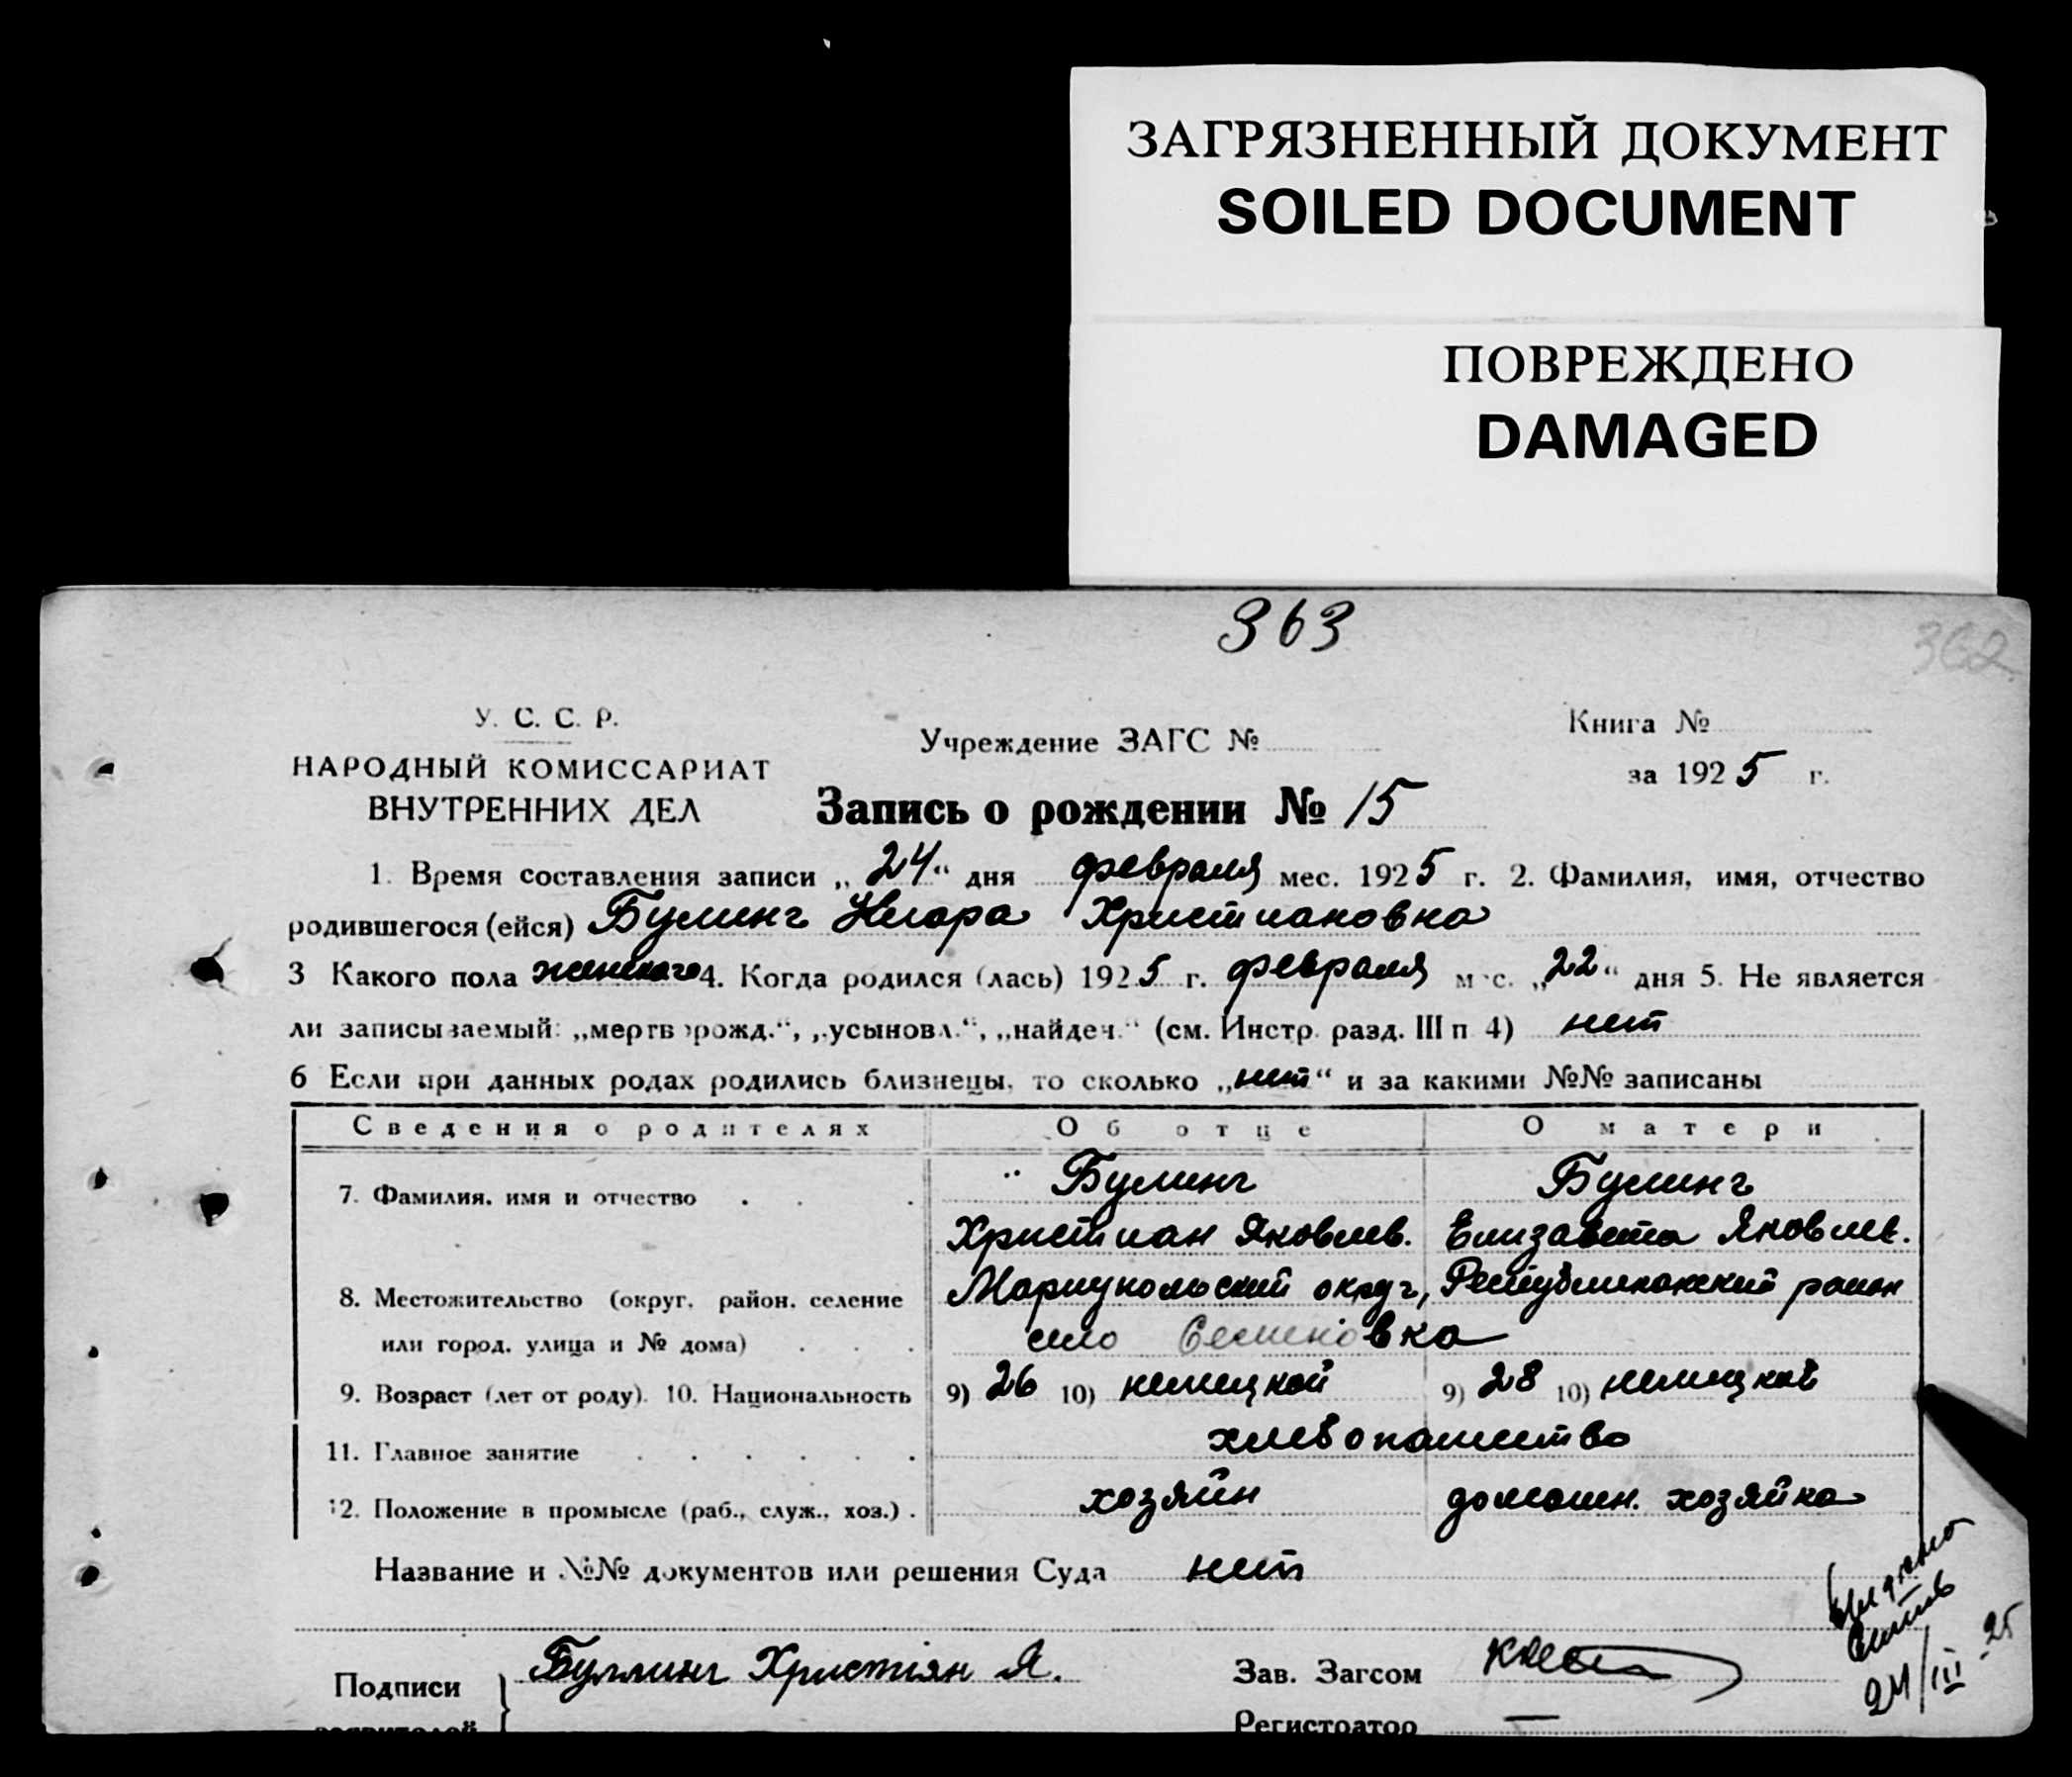 ЗАГРЯЗНЕННЫЙ ДОКУМЕНТ
SOILED DOCUMENT
ПОВРЕЖДЕНО
DAMAGED
363
362
У. С. С. Р.
НАРОДНЫЙ КОМИССАРИАТ
ВНУТРЕННИХ ДЕЛ
Учреждение ЗАГС №
Книга №
за 1925 г.
Запись о рождении № 15
1. Время составления записи „24“ дня февраля мес. 1925 г. 2. Фамилия, имя, отчество
родившегося (ейся) Булинг Христиановна
3 Какого пола женского 4. Когда родился (лась) 1925 г. февраля м-с. „22“ дня 5. Не является
ли записываемый: „мертворожд.“, „усыновл.“, „найден.“ (см. Инстр. разд. III п 4) нет
6 Если при данных родах родились близнецы, то сколько „нет“ и за какими №№ записаны
Сведения о родителях Об отце О матери
7. Фамилия, имя и отчество Булинг Булинг
Христиан Яковлев. Елизавета Яковлев.
8. Местожительство (округ, район, селение Мариупольский округ, Республиканский район
или город, улица и № дома) село Семеновка
9. Возраст (лет от роду). 10. Национальность 9) 26 10) немецкой 9) 28 10) немецкой
11. Главное занятие хлебопашество
12. Положение в промысле (раб., служ., хоз.) хозяйн домашн. хозяйка
Название и №№ документов или решения Суда нет
Подписи Буллинг Христіян Я. Зав. Загсом
заявителей Регистратор —
24/III - 25